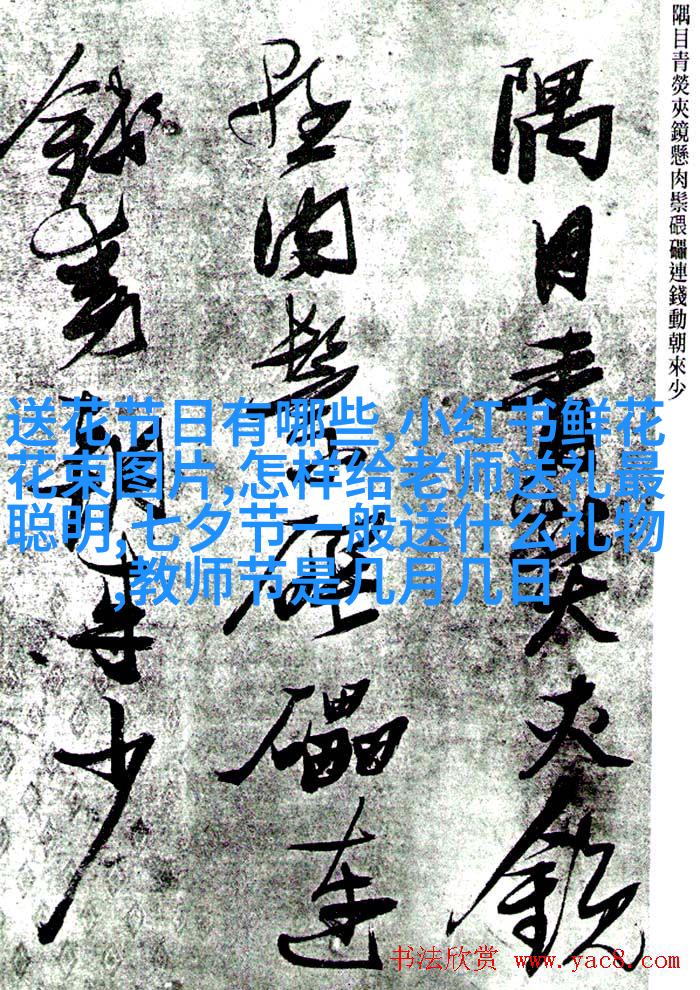 隅目青熒夾鏡懸肉鬃碨礧連錢動朝來少
隅目青熒夾鏡
懸肉鬃碨礧連
錢動朝來少
送花节日有哪些,小红书鲜花
花束图片,怎样给老师送礼最
聪明,七夕节一般送什么礼物
,教师节是几月几日
书法欣赏 www.yac8.com